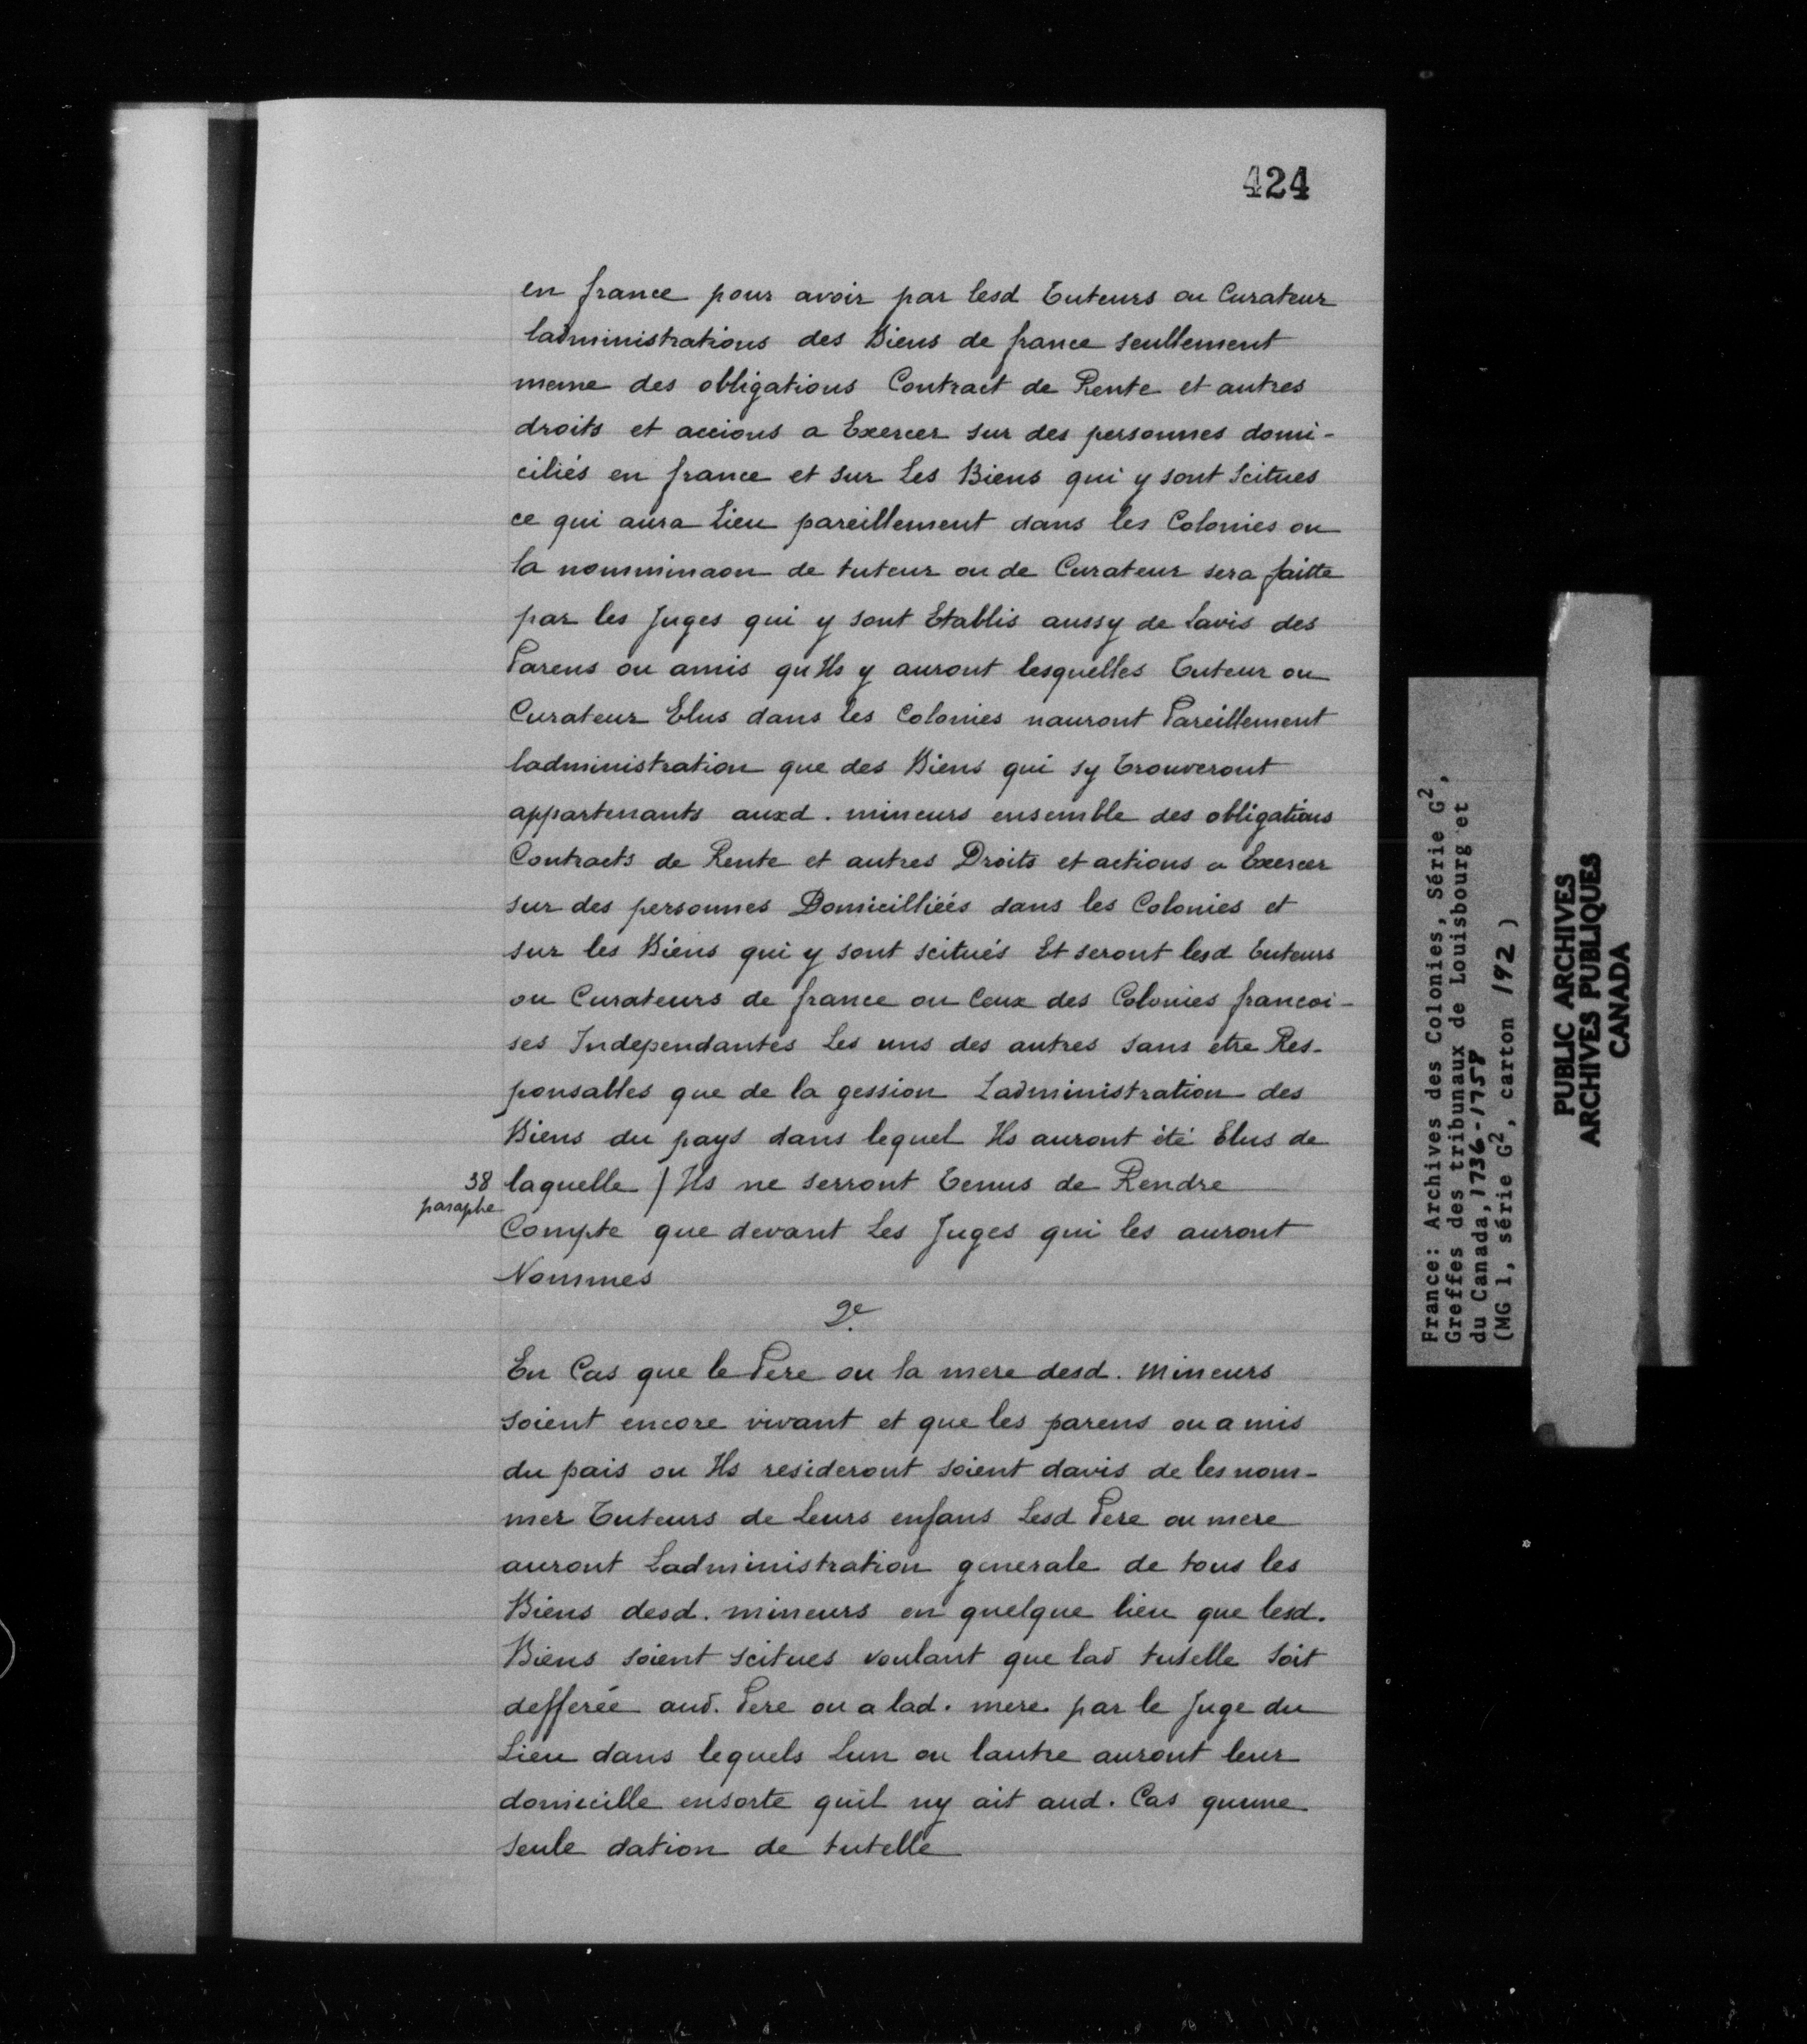 424
en france pour avoir par lesd Tuteurs ou Curateur
ladministrations des Biens de france seullement
meme des obligations Contract de Rente et autres
droits et accions a Exercer sur des personnes domi-
ciliés en france et sur Les Biens qui y sont Scitues
ce qui aura Lieu pareillement dans les Colonies ou
la nomminaon de tuteur ou de Curateur sera faitte
par les Juges qui y sont Etablis aussy de Lavis des
Parens ou amis quIls y auront lesquelles Tuteur ou
Curateur Elus dans les Colonies nauront Pareillement
ladministration que des Biens qui sy Trouveront
appartenants auxd. mineurs ensemble des obligations
Contracts de Rente et autres Droits et actions a Exercer
sur des personnes Domicilliées dans les Colonies et
sur les Biens qui y sont scitués Et seront lesd Tuteurs
ou Curateurs de france ou Ceux des Colonies francoi-
ses Independantes Les uns des autres sans etre Res-
ponsables que de la gession Ladministration des
Biens du pays dans lequel Ils auront été Elus de
38 laquelle / Ils ne serront Tenus de Rendre
paraphe
Compte que devant Les Juges qui les auront
Nommes
2e
En Cas que le Pere ou la mere desd. mineurs
soient encore vivant et que les parens ou amis
du pais ou Ils resideront soient davis de les nom-
mer Tuteurs de Leurs enfans Lesd Pere ou mere
auront Ladministration generale de tous les
Biens desd. mineurs en quelque lieu que lesd.
Biens soient scitues voulant que lad tutelle Soit
defferée aud. Pere ou a lad. mere par le Juge du
Lieu dans lequels Lun ou lautre auront leur
domicille ensorte quil ny ait aud. Cas quune
seule dation de tutelle
France: Archives des Colonies, Série G2,
Greffes des tribunaux de Louisbourg et
du Canada, 1736-1758
(MG 1, série G2, carton 192 )
PUBLIC ARCHIVES
ARCHIVES PUBLIQUES
CANADA